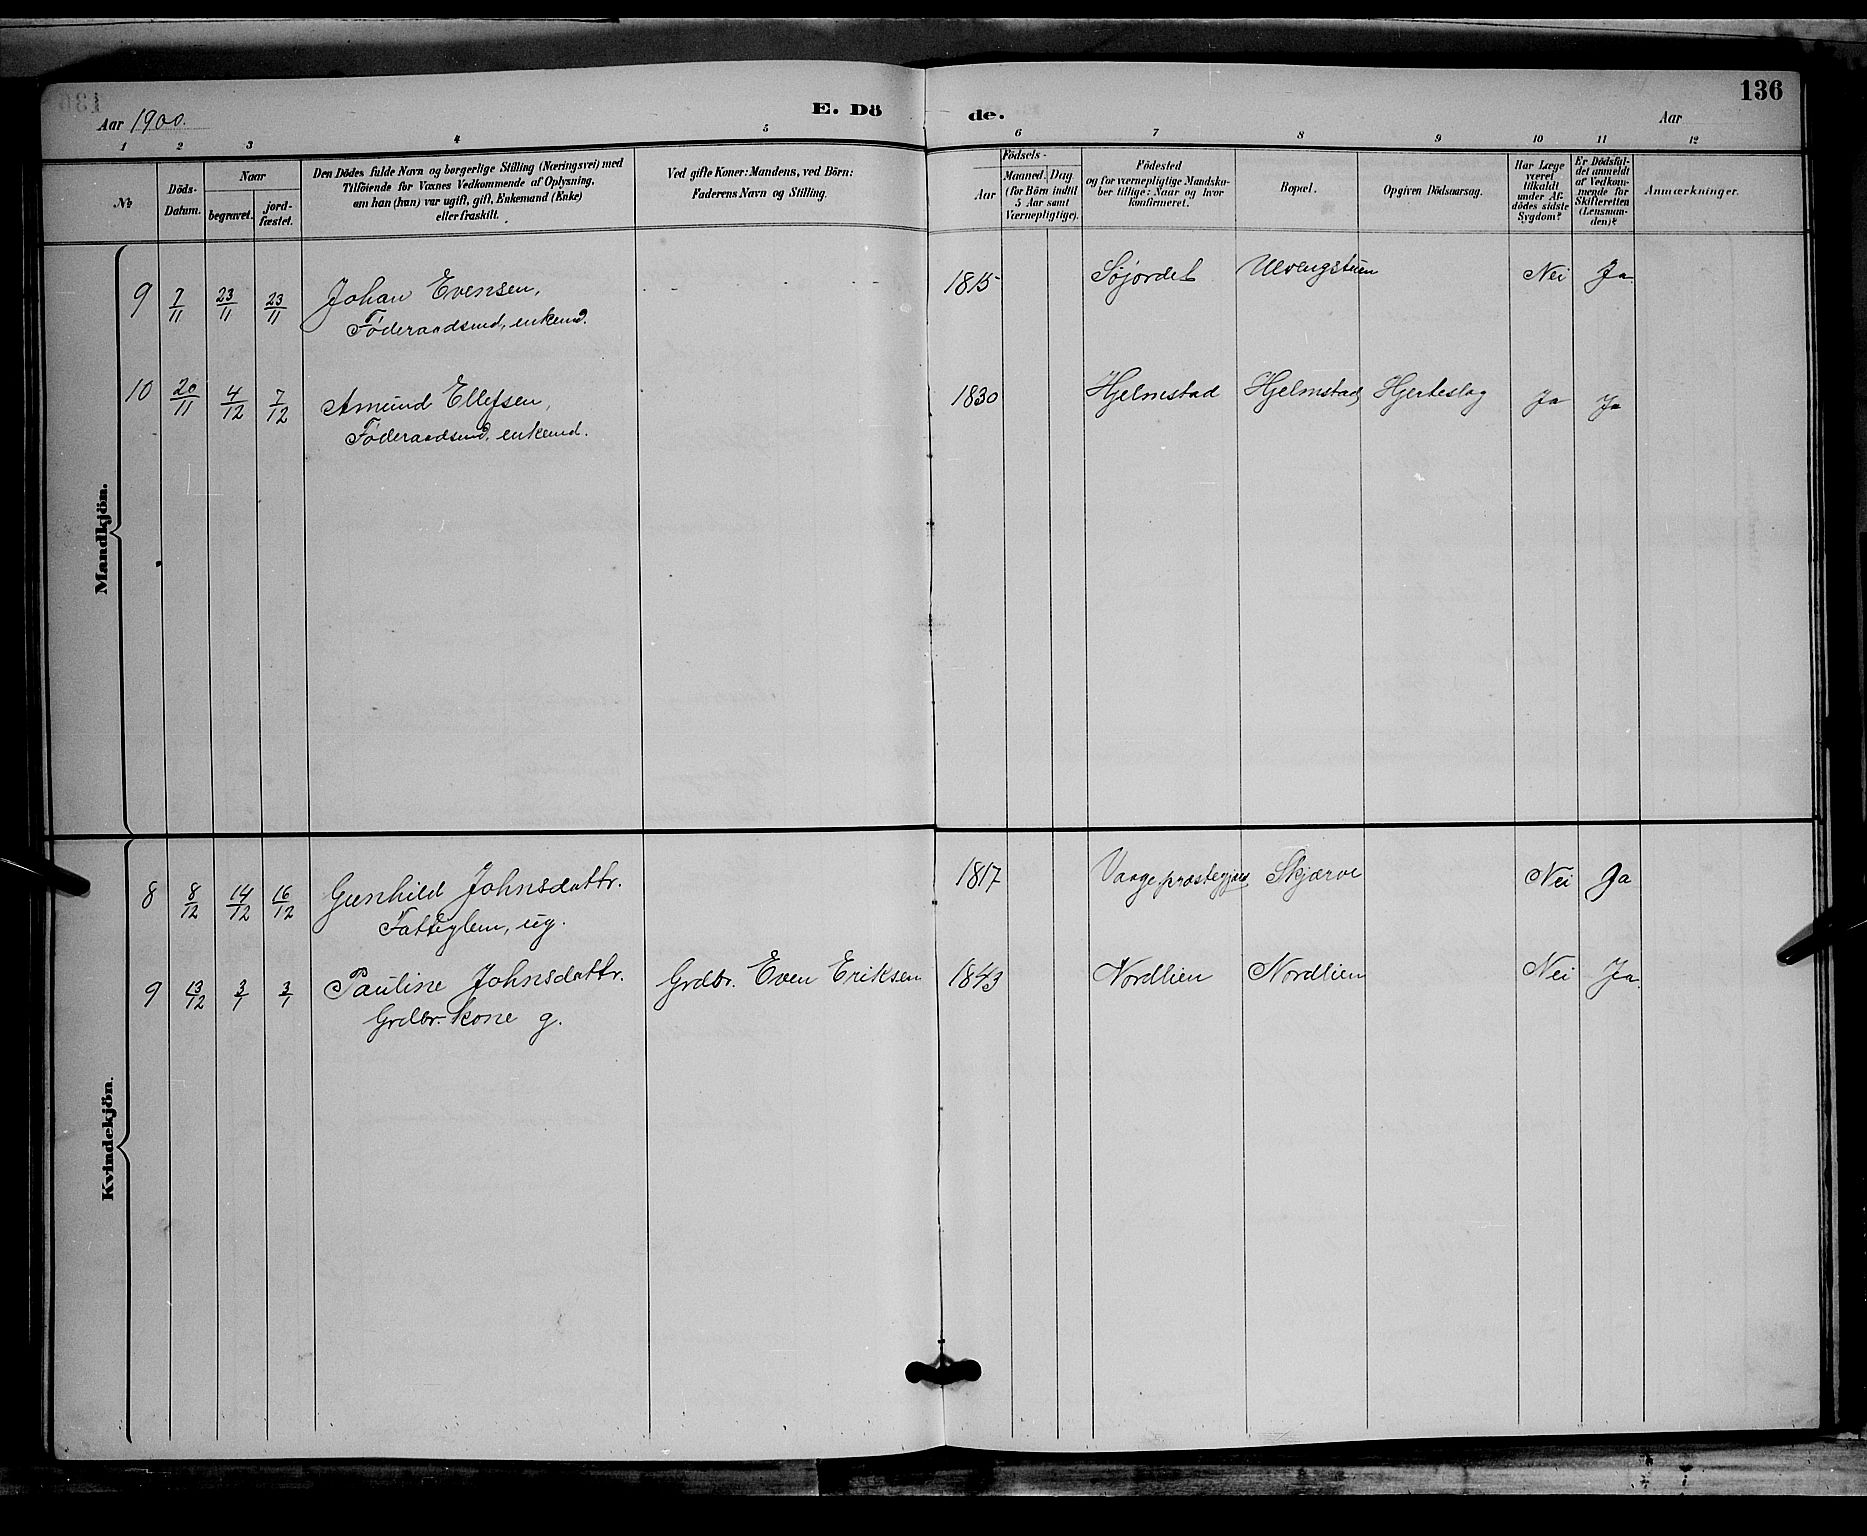 136
Aar 1900.
E. Dö de.
Aar
1 2 3 4 5 6 7 8 9 10 11 12
№
Döds-
Datum.
Naar
begravet.
jord-
fæstet.
Den Dödes fulde Navn og borgerlige Stilling (Næringsvei) med
Tilföiende for Voxnes Vedkommende af Oplysning,
om han (hun) var ugift, gift, Enkemand (Enke)
eller fraskilt.
Ved gifte Koner: Mandens, ved Börn:
Faderens Navn og Stilling.
Födsels-
Aar
Maaned. Dag.
(for Börn indtil
5 Aar samt
Værnepligtige).
Födested
og for værnepligtige Mandska-
ber tillige: Naar og hvor
konfirmeret.
Bopæl.
Opgiven Dödsaarsag.
Har Læge
været
tilkaldt
under Af-
dödes sidste
Sygdom?
Er Dödsfal-
det anmeldt
af Vedkom-
mende for
Skifteretten
(Lensman-
den)?
Anmærkninger.
Mandkjön.
9 7/11 23/11 23/11 Johan Evensen, 1815 Søjordet Ulvengstuen Nei Ja
Føderaadsmd, enkemd.
10 20/11 4/12 7/12 Amund Ellefsen, 1830 Hjelmstad Hjelmstad Hjerteslag Ja Ja
Føderaadsmd, enkemd.
Kvindekjön.
8 8/12 14/12 16/12 Gunhild Johnsdattr. 1817 Vaage præstegjæld Skjærve Nei Ja
Fattiglem, ug.
9 13/12 3/1 3/1 Pauline Johnsdattr. Grdbr. Even Eriksen 1843 Nordlien Nordlien Nei Ja.
Grdbr. kone g.